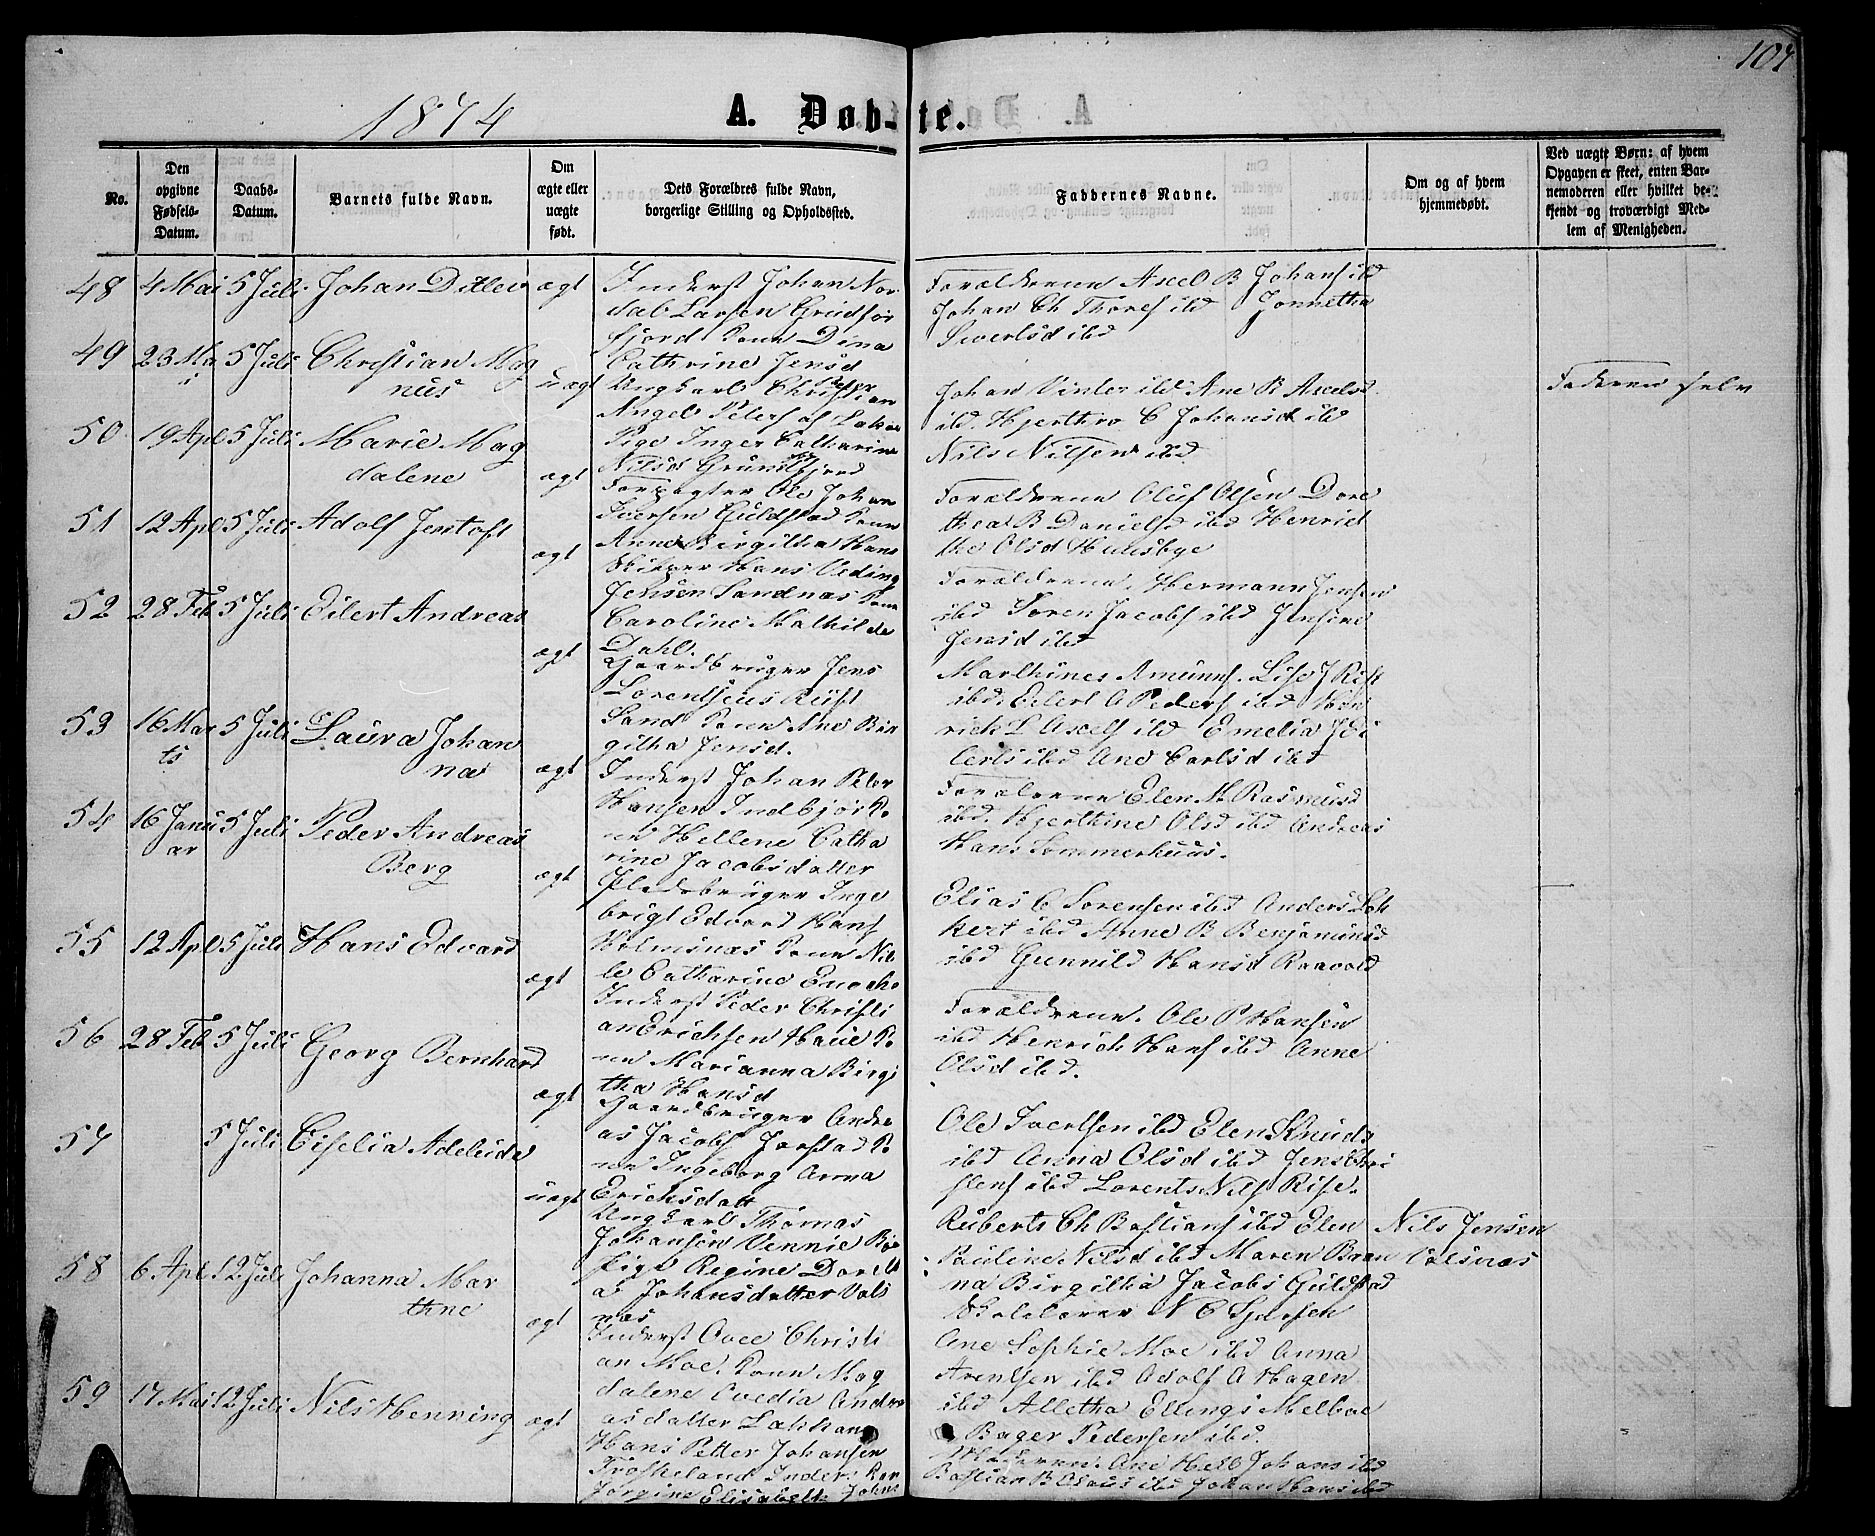 107
1874
A. Døb-te.
No.
Den opgivne Fødsels-Datum.
Daabs-Datum.
Barnets fulde Navn.
Om ægte eller uægte født.
Dets Forældres fulde Navn, borgerlige Stilling og Opholdssted.
Faddernes Navne.
Om og af hvem hjemmedøbt.
Ved uægte Børn: af hvem Opgaven er skeet, enten Barnemoderen eller hvilket bekjendt og troværdigt Medlem af Menigheden.
48 4 Mai 5 Juli Johan Ditlev ægt
Inderst Johan Nor
dal Larsen Grundfør
fjord Kone Dina
Cathrine Jensd
Forældrene Axel B Johans ibd
Johan Ch Thores ibd Jonnetha
Siverlsd ibd
49 23 Ma
i 5 Juli Christian Mag
nus uægt
Ungkarl Christian
Angel Peters af
Pige Inger Catharine
Nilsd Grundfjord
Johan Vinter ibd Ane B Axelsd
ibd. Hjerthro C Johansd ibd
Nils Nilsen ibd
Faderen selv
50 19 Apl 5 Juli Marie Mag
dalene ægt
Forpagter Ole Johan
Iversen Guldstad Kone
Anne Birgitha Hans
Forældrene Oluf Olsen Dore
thea B Daniels ibd Henriet
the Olsd Huusbye
51 12 Apl 5 Juli Adolf Jentoft ægt
Skipper Hans Veding
Jensen Sandnæs Kone
Caroline Mathilde
Dahl.
Forældrene. Hermann Jensen
ibd Søren Jacobs ibd Jensine
Jensd ibd
52 28 Feb 5 Juli Eilert Andreas ægt
Gaardbruger Jens
Lorentseus Riise
Sand Kone Ane Bir
githa Jensd.
Marthines Amunns. Lise J Rise
ibd. Eilert A Peders ibd Hen
rich L Axels ibd Emelia J Ei
lerts ibd Ane Carlsd ibd
53 16 Mar
ts 5 Juli Laura Johan
na ægt
Inderst Johan Peter
Hansen Indbjør K
ne Hellene Catha
rine Jacobsdatter
Forældrene Elen M Rasmusd
ibd. Hjerthine Olsd ibd Andreas
Hans Sommerhuus.
54 16 Janu
ar 5 Juli Peder Andreas
Berg ægt
Pladsbruger Inge
brigt Edvard Hans
Holmsnæs Kone Nil
le Catharine Enochs
Elias C Sørensen ibd Anders Lok
kert ibd Anne B Benjaminsd
ibd Gunnild Hansd Raavold
55 12 Apl 5 Juli Hans Edvard ægt
Inderst Peder Christi
an Erichsen Haue K
ne Marianna Birgi
tha Hansd
Forældrene. Ole P Hansen
ibd Henrich Hans ibd Anne
Olsd ibd.
56 28 Feb 5 Juli Georg Bernhard ægt
Gaardbruger Andre
as Jacobs Jørstad K
ne Ingeborg Anna
Erichsdatt
Ole Ivertsen ibd Elen Knuds
ibd Anna Olsd ibd Jens Chri
stens ibd Lorents Nils Rise.
57 5 Juli Ciselia Adeleide uægt
Ungkarl Thomas
Johansen Vennie
Pige Regine Dorth
a Johansdatter Vals
næs
Ruberts Ch Bastians ibd Elen
Pauline Nilsd ibd Maren
na Birgitha Jacobs Guldstad
Skolelærer N C
Nils Jensen
Valsnæs
58 6 Apl 12 Juli Johanna Mar
thne ægt
Inderst Ovee Christi
an Moe. Kone Mag
dalene Ovedia Andre
asdatter
Ane Sophie Moe ibd Anna
Arentsen ibd Adolf A Hagen
ibd Alletha Ellings Melboe
Bager Pedersen ibd.
59 17 Mai 12 Juli Nils Henning ægt
Hans Petter Johansen
Froskeland Inder: Kon
Jørgine Elisabeth Johns
Moderen. Ane Hell Johans ibd
Bastian B Olaus ibd Johan Hans ibd